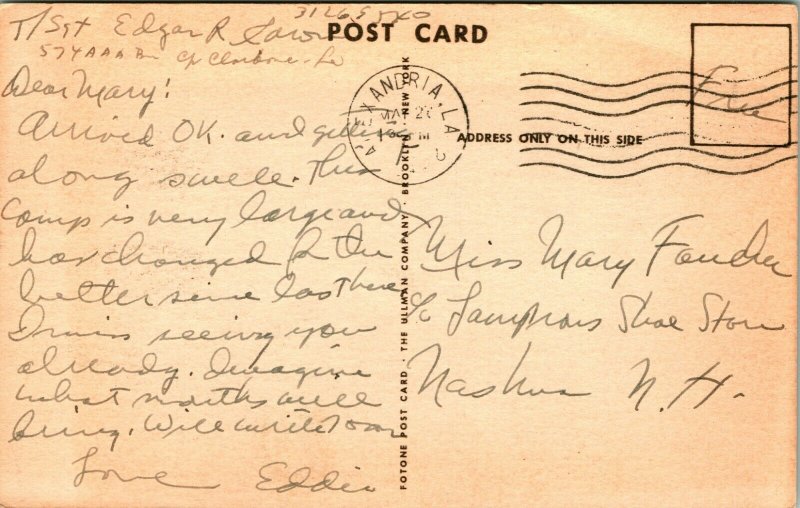 T/Sgt Edgar R
574 AAA Bn Cp Claiborne - La
Dear Mary:
Arrived OK. and getting
along swell. This
camp is very large and
has changed for the
better since last here
I miss seeing you
already. Imagine
what months will
bring. Will write soon
Love Eddie
POST CARD
ALEXANDRIA, LA
MAY 2
PM
Free
ADDRESS ONLY ON THIS SIDE
Miss Mary
c/o Lamprons Shoe Store
Nashua N.H.
FOTONE POST CARD · THE ULLMAN COMPANY · BROOKLYN · NEW YORK